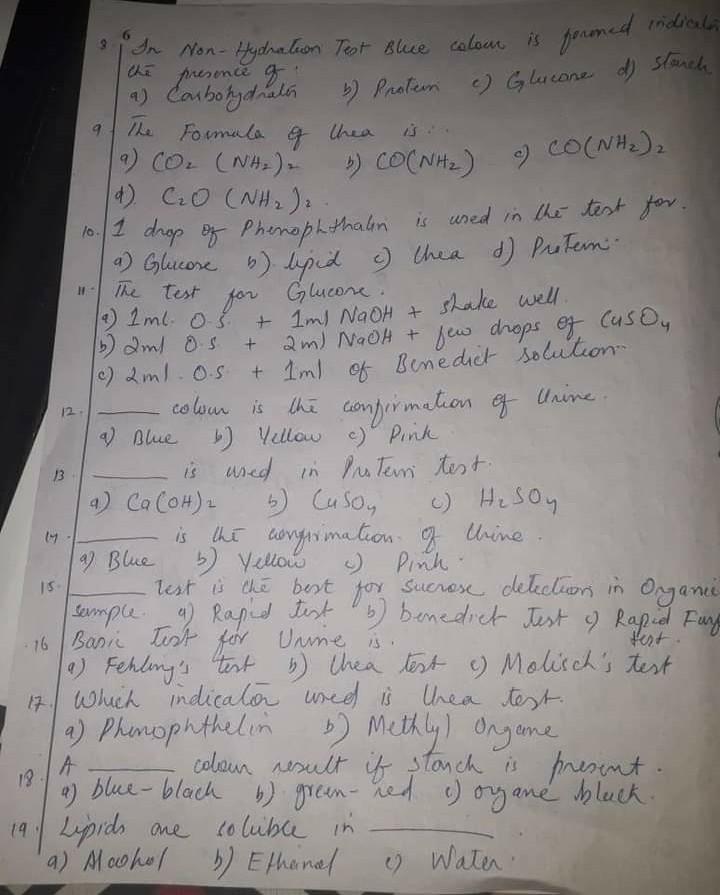 8 6 In Non-Hydration Test Blue colour is formed
the presence of.
a) Carbohydrates b) Protein c) Glucose d) Starch
9. The Formula of Urea is :.
a) CO2 (NH2)2 b) CO(NH2) c) CO(NH2)2
d). C2O (NH2)2.
10. 1 drop of Phenophthalin is used in the test for.
a) Glucose b). lipid c) Urea d) Protein.
11. The test for Glucose.
a) 1ml. O.S. + 1ml NaOH + shake well.
b) 2ml O.S. + 2ml NaOH + few drops of CuSO4
c) 2ml. O.S. + 1ml of Benedict solution
12. ______ colour is the confirmation of Urine.
a) Blue b) Yellow c) Pink
13 ______ is used in Protein test.
a) Ca(OH)2 b) CuSO4 c) H2SO4
14. ______ is the confirmation of Urine.
a) Blue b) Yellow c) Pink.
15. ______ test is the best for Sucrose detection in Organic
sample. a) Rapid test b) benedict Test c) Rapid Furf
test.
16 Basic Test for Urine is.
a) Fehling's test b) Urea test c) Molisch's test
17. Which indicator used is Urea test.
a) Phenophthelin b) Methlyl Organe
18. A ______ colour result if starch is present.
a) blue-black b) green-red c) organe black.
19. Lipids are soluble in ______.
a) Alcohol b) Ethanol c) Water.